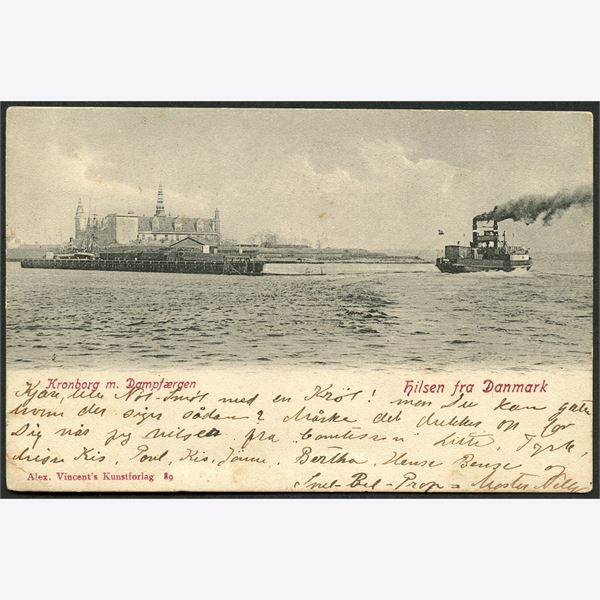 Kronborg m. Dampfærgen
Hilsen fra Danmark
Kjære, lille Nöt-Smöt med en Kröl! mon Du kan gæte
hvem der siger sådan? Måske det dukker op for
Dig når jeg hilser fra "Comtessen" Litte, Tyrk,
Kis, Povl, Kis, Bertha, Hense Bense og
Snel-Bel-Prop = Moster Nelly
Alex. Vincent's Kunstforlag 89